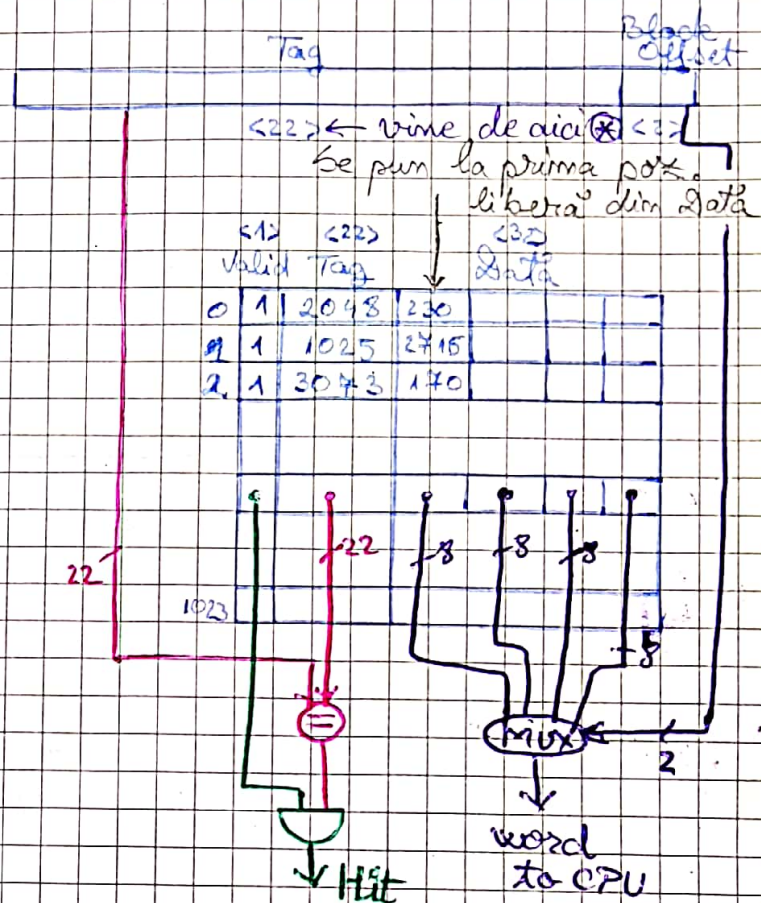 Tag
Block
Offset
<22> ← vine de aici ⊛ <2>
Se pun la prima poz.
liberă din Data
<1> <22> <32>
Valid Tag Data
0 1 2048 230
1 1 1025 2715
2 1 3073 170
22 22 8 8 8
1023
8
=
MUX
2
word
to CPU
Hit